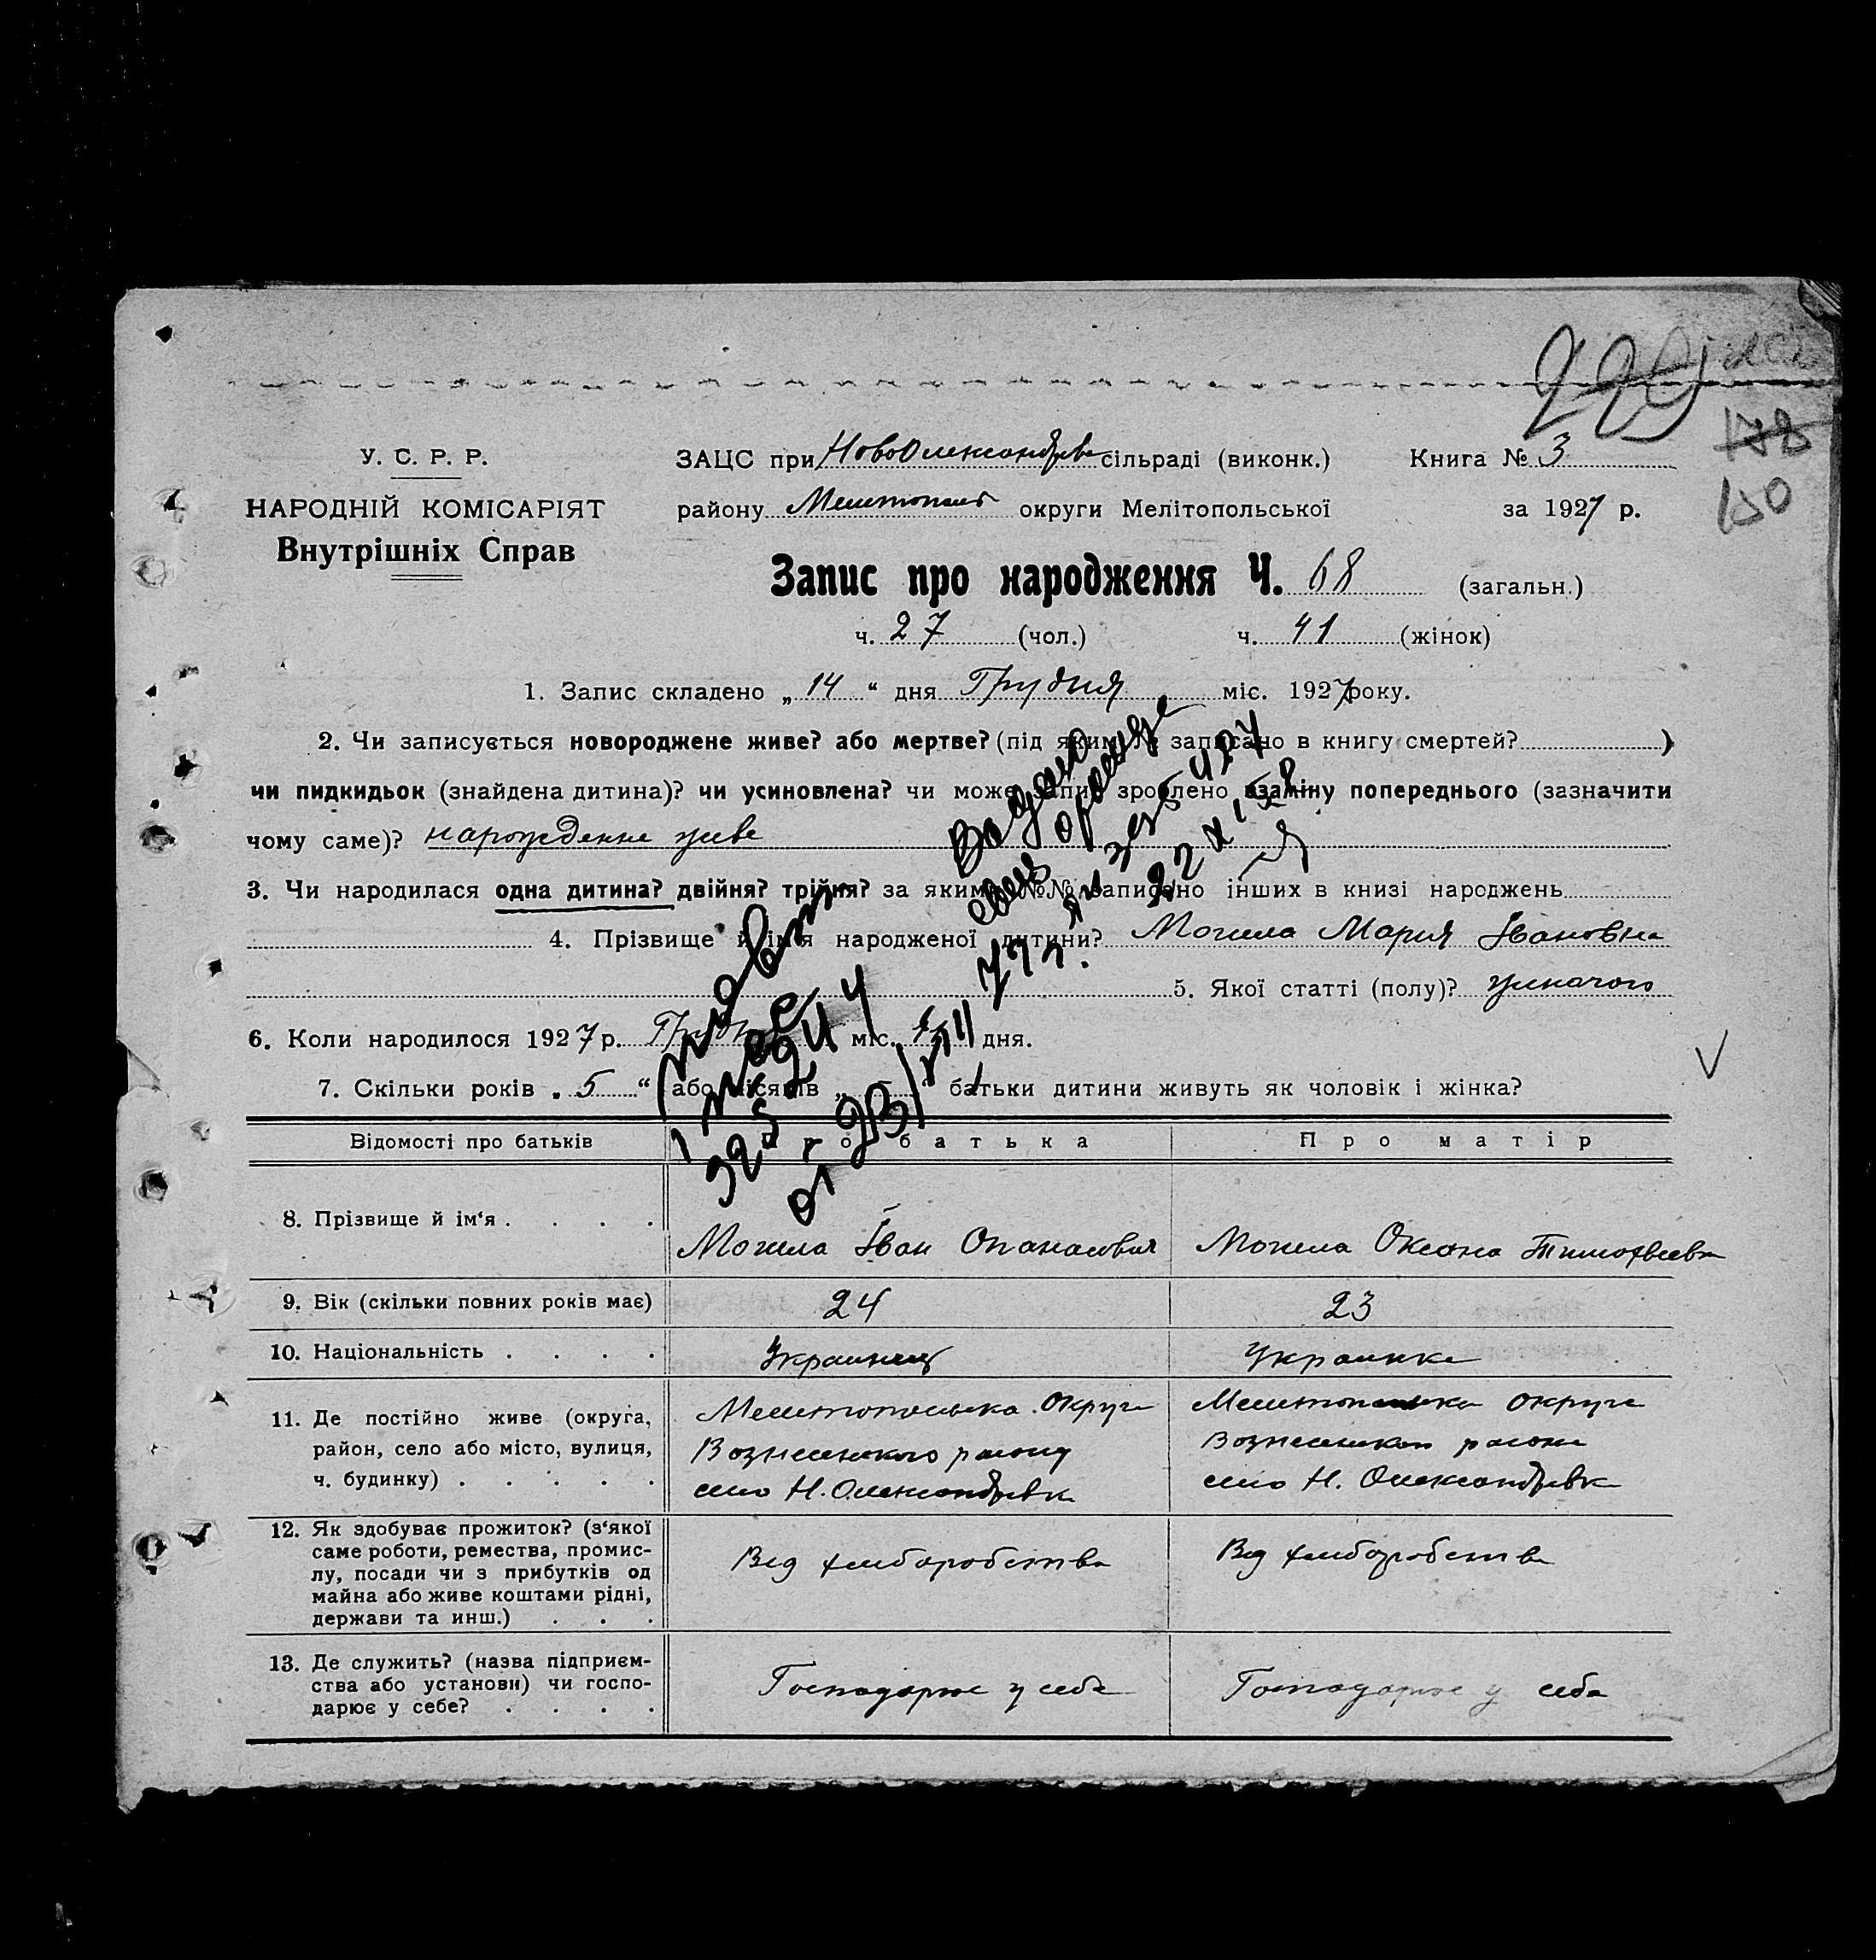 229
188
150
У. С. Р. Р.
НАРОДНІЙ КОМІСАРІЯТ
Внутрішніх Справ
ЗАЦС при НовоОлександрівс сільраді (виконк.) Книга № 3
району Мелітополь округи Мелітопольської за 1927 р.
Запис про народження Ч. 68 (загальн.)
ч. 27 (чол.) ч. 41 (жінок)
1. Запис складено „ 14 “ дня Грудня міс. 1927 року.
2. Чи записується новороджене живе? або мертве? (під яким № записано в книгу смертей? )
чи пидкидьок (знайдена дитина)? чи усиновлена? чи може запис зроблено взаміну попереднього (зазначити
чому саме)? нарожденне живе
3. Чи народилася одна дитина? двійня? трійня? за якими №№ записано інших в книзі народжень
4. Прізвище й ім‘я народженої дитини? Могила Мария Івановна
5. Якої статті (полу)? жиночого
6. Коли народилося 1927 р. Грудня міс. дня.
7. Скільки років „ 5 “ або місяців „ “ батьки дитини живуть як чоловік і жінка?
Видано
22 XI 58
325
от 23/XII
Відомості про батьків Про батька Про матір
8. Прізвище й ім‘я . . . . Могила Іван Опанасович Могила Оксана Тимофвеевна
9. Вік (скільки повних років має) 24 23
10. Національність . . . . Украинец Украинка
11. Де постійно живе (округа, район, село або місто, вулиця, ч. будинку) . . . . .
Мелитопольска округа
Вознесенского району
село Н. Олександрвка
Мелитопольска округа
Вознесенского району
село Н. Олександрвка
12. Як здобуває прожиток? (з‘якої
саме роботи, ремества, промис-
лу, посади чи з прибутків од
майна або живе коштами рідні,
держави та инш.) . . .
Вид хлиборобства Вид хлиборобства
13. Де служить? (назва підприєм-
ства або установи) чи госпо-
дарює у себе? . . . .
Господарює у себе Господарює у себе